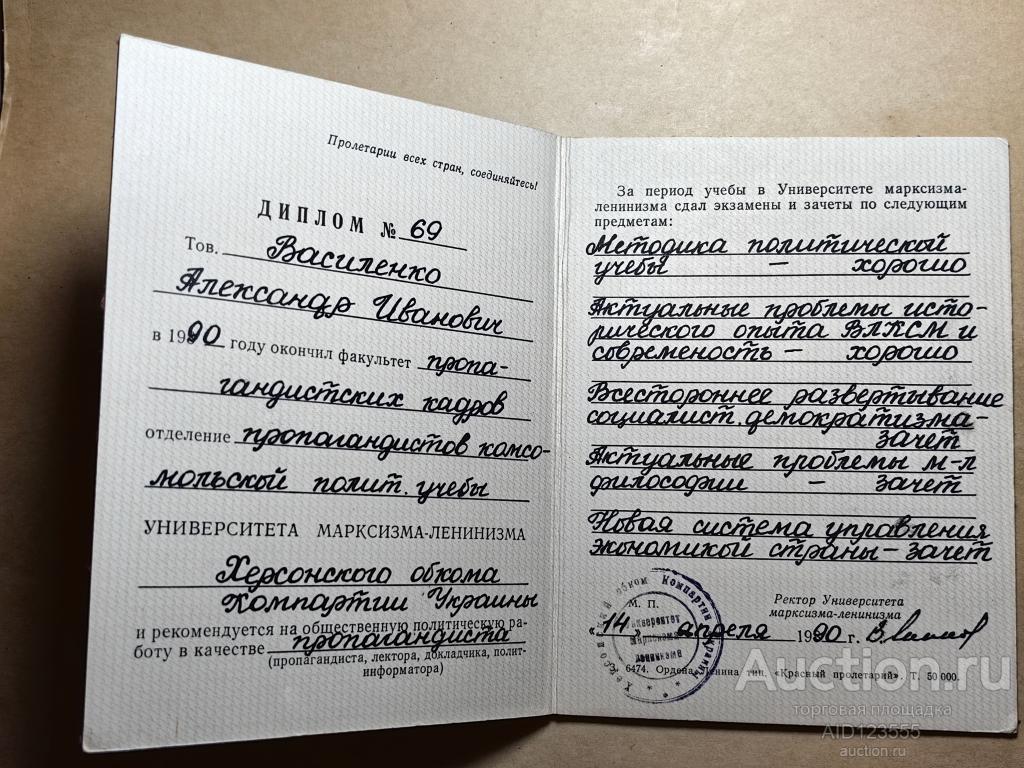 Пролетарии всех стран, соединяйтесь!
ДИПЛОМ № 69
Тов. Василенко
Александр Иванович
в 1990 году окончил факультет пропа-
гандистских кадров
отделение пропагандистов комсо-
мольской полит. учебы
УНИВЕРСИТЕТА МАРКСИЗМА-ЛЕНИНИЗМА
Херсонского обкома
Компартии Украины
и рекомендуется на общественную политическую ра-
боту в качестве пропагандиста
(пропагандиста, лектора, докладчика, полит-
информатора)
За период учебы в Университете марксизма-
ленинизма сдал экзамены и зачеты по следующим
предметам:
Методика политической
учебы — хорошо
Актуальные проблемы исто-
рического опыта ВЛКСМ и
современость — хорошо
Всестороннее развертывание
социалист. демократизма-
зачет
Актуальные проблемы м-л
философии — зачет
Новая система управления
экономикой страны — зачет
Ректор Университета
марксизма-ленинизма
М. П.
"14" апреля 1990 г.
Херсонский обком Компартии Украины
Университет
марксизма
ленинизма
6474. Ордена Ленина тип. «Красный пролетарий». Т. 50 000.
Auction.ru
торговая площадка
AID123555
auction.ru